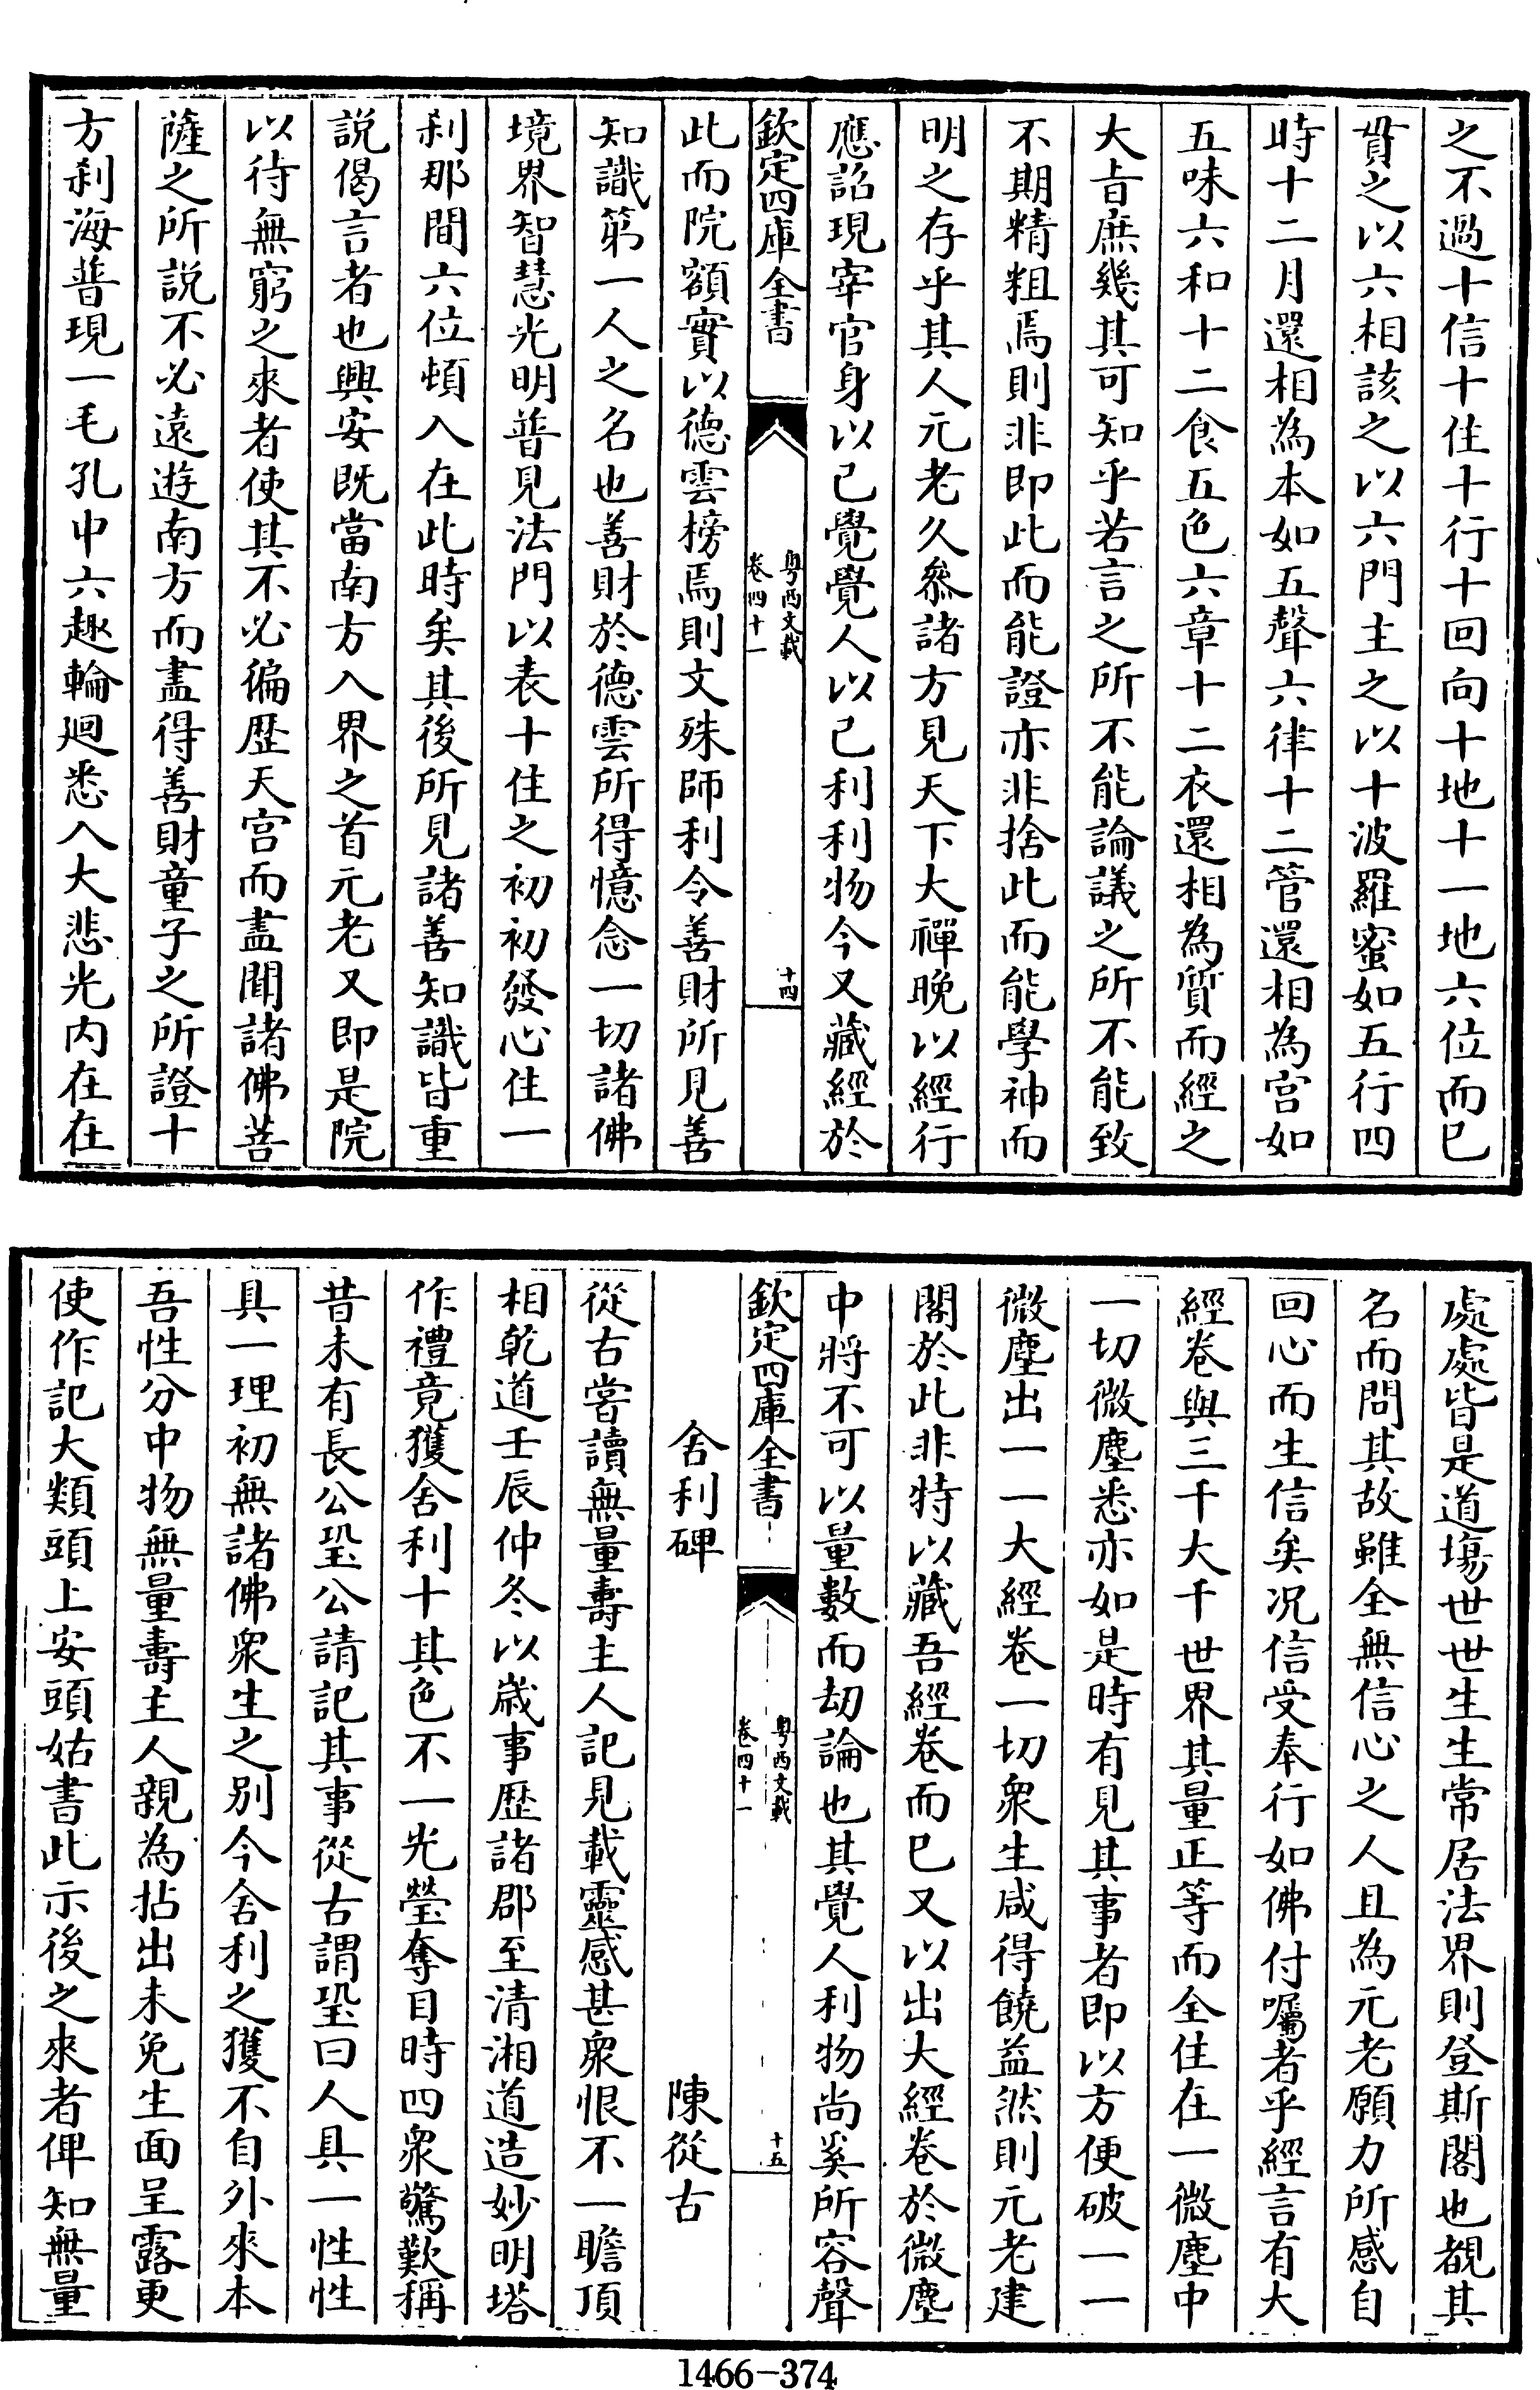 之不過十信十住十行十回向十地十一地六位而已
貫之以六相該之以六門主之以十波羅蜜如五行四
時十二月還相為本如五聲六律十二管還相為宫如
五味六和十二食五色六章十二衣還相為質而經之
大旨庶幾其可知乎若言之所不能論議之所不能致
不期精粗焉則非即此而能證亦非捨此而能學神而
明之存乎其人元老久叅諸方見天下大禪晚以經行
應詔現宰官身以已覺覺人以已利利物今又藏經於
欽定四庫全書
粤西文載
卷四十一
十四
此而院額實以德雲榜焉則文殊師利令善財所見善
知識第一人之名也善財於德雲所得憶念一切諸佛
境界智慧光明普見法門以表十住之初初發心住一
刹那間六位頓入在此時矣其後所見諸善知識皆重
説偈言者也興安既當南方入界之首元老又即是院
以待無窮之來者使其不必徧歴天宫而盡聞諸佛菩
薩之所説不必遠遊南方而盡得善財童子之所證十
方刹海普現一毛孔中六趣輪廻悉入大悲光内在在
處處皆是道塲世世生生常居法界則登斯閣也覩其
名而問其故雖全無信心之人且為元老願力所感自
回心而生信矣况信受奉行如佛付囑者乎經言有大
經卷與三千大千世界其量正等而全住在一微塵中
一切微塵悉亦如是時有見其事者即以方便破一一
微塵出一一大經卷一切衆生咸得饒益然則元老建
閣於此非特以藏吾經卷而已又以出大經卷於微塵
中將不可以量數而刼論也其覺人利物尚奚所容聲
欽定四庫全書
粤西文載
卷四十一
十五
舍利碑
陳從古
從古嘗讀無量壽主人記見載靈感甚衆恨不一瞻頂
相乾道壬辰仲冬以歲事歴諸郡至清湘道造妙明塔
作禮竟獲舍利十其色不一光瑩奪目時四衆驚歎稱
昔未有長公㻞公請記其事從古謂㻞曰人具一性性
具一理初無諸佛衆生之别今舍利之獲不自外來本
吾性分中物無量壽主人親為拈出未免生面呈露更
使作記大類頭上安頭姑書此示後之來者俾知無量
1466-374